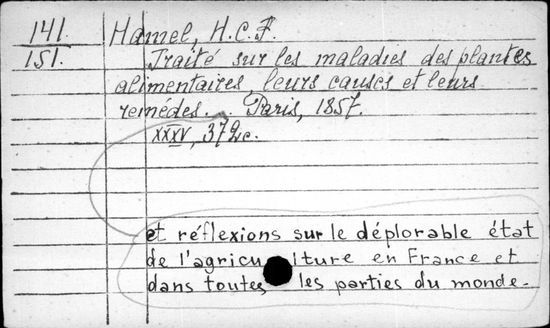 141. Hamel, H.C.F.
151. Traité sur les maladies des plantes
alimentaires, leurs causes et leurs
remèdes... Paris, 1857.
XXXV, 372c.
et réflexions sur le déplorable état
de l'agriculture en France et
dans toutes les parties du monde.